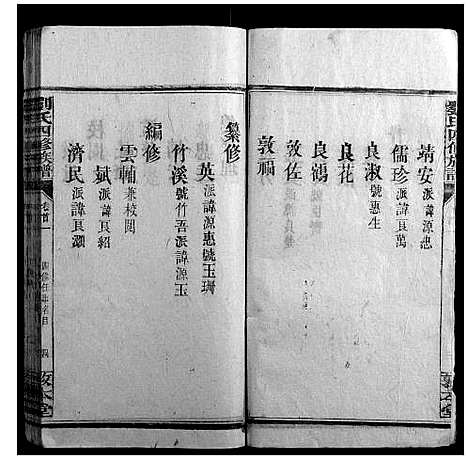 劉氏四修族譜
靖安派諱源忠
儒珍派諱良萬
良淑號惠生
良花
良鴻
敦佐
敦福
纂修
英派諱源惠號玉珊
竹溪號竹吾派諱源玉
編修
雲輔兼校閱
斌派諱良紹
濟民派諱良灝
劉氏四修族譜
卷首
敦本堂